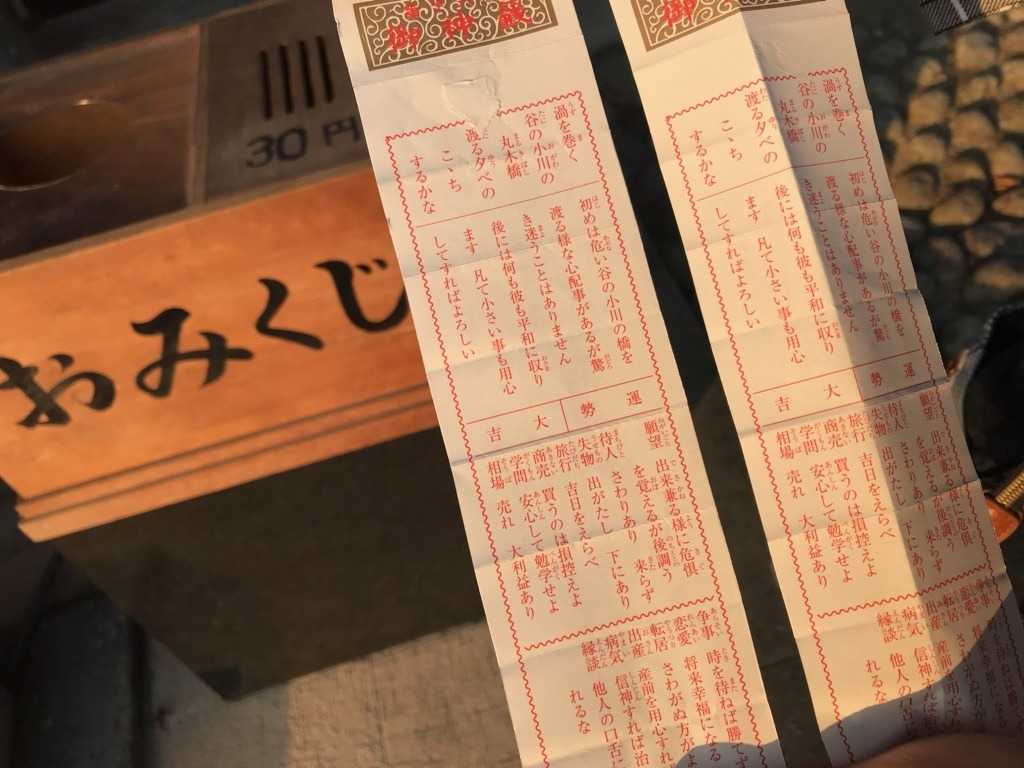 30円
おみくじ
御神籤
渦を巻く
谷の小川の
丸木橋
渡る夕べの
こゝち
するかな
初めは危い谷の小川の橋を
渡る様な心配事があるが驚
き迷うことはありません
後には何も彼も平和に収り
ます 凡て小さい事も用心
してすればよろしい
運勢 大吉
願望 出来兼る様に危惧
を覚えるが後調う
待人 さわりあり 来らず
失物 出がたし 下にあり
旅行 吉日をえらべ
商売 買うのは損控えよ
学問 安心して勉学せよ
相場 売れ 大利益あり
争事 時を待ねば勝てず
恋愛 将来幸福になる
転居 さわがぬ方が
出産 産前を用心すれ
病気 信神すれば治
縁談 他人の口舌に
れるな
御
渦を巻く
谷の小川の
丸木橋
渡る夕べの
こゝち
するかな
初めは危い谷の小川の橋を
渡る様な心配事があるが驚
き迷うことはありません
後には何も彼も平和に収り
ます 凡て小さい事も用心
してすればよろしい
運勢 大吉
願望 出来兼る様に危惧
を覚えるが後調う
待人 さわりあり 来らず
失物 出がたし 下にあり
旅行 吉日をえらべ
商売 買うのは損控えよ
学問 安心して勉学せよ
相場 売れ 大利益あり
転居 さわが
出産 産前を用
病気 信神すれ
縁談 他人の口
れるな